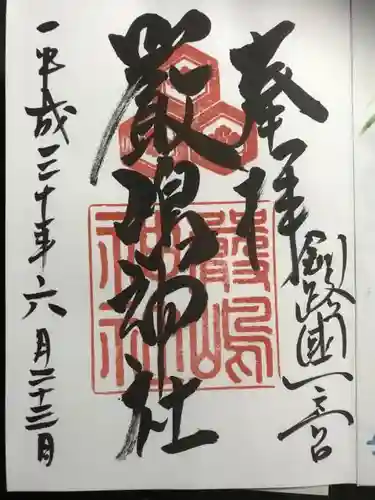 奉拝
釧路國一之宮
厳島神社
嚴嶋神社
平成三十年六月二十三日